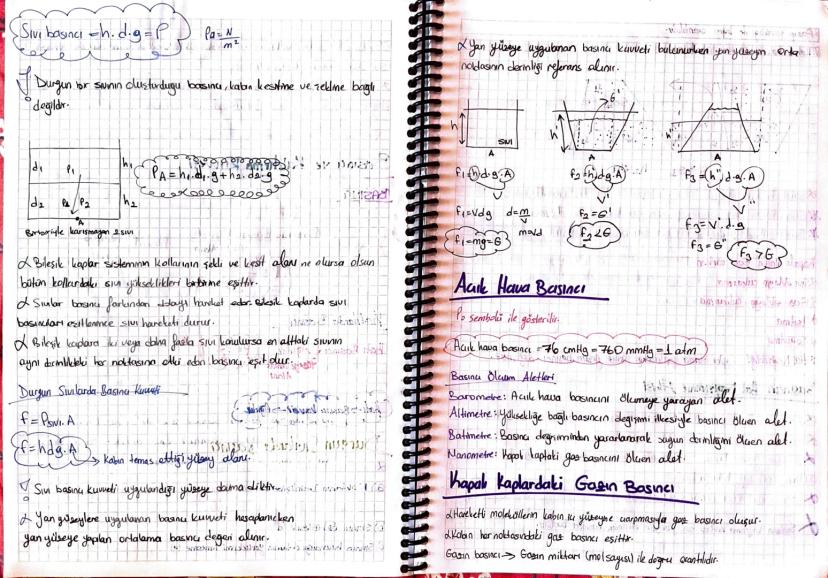 Sıvı basıncı = h.d.g = P
Pa = N/m²
Durgun bir sıvının oluşturduğu basınç, kabın kesitine ve şekline bağlı
değildir.
d₁ P₁ h₁
d₂ P₂ P₂ h₂
A
Birbiriyle karışmayan 2 sıvı
P_A = h₁.d₁.g + h₂.d₂.g
Bileşik kaplar sisteminin kollarının şekli ve kesit alanı ne olursa olsun
bütün kollardaki sıvı yükseklikleri birbirine eşittir.
Sıvılar basınç farkından dolayı hareket eder. Bileşik kaplarda sıvı
basınçları eşitlenince sıvı hareketi durur.
Bileşik kaplara iki veya daha fazla sıvı konulursa en alttaki sıvının
aynı derinlikteki her noktasına etki eden basınç eşit olur.
Durgun Sıvılarda Basınç Kuvveti
f = Psıvı.A
f = hdg.A → Kabın temas ettiği yüzey alanı
Sıvı basınç kuvveti uygulandığı yüzeye daima diktir.
Yan yüzeylere uygulanan basınç kuvveti hesaplanırken
yan yüzeye yapılan ortalama basınç değeri alınır.
Yan yüzeye uygulanan basınç kuvveti bulunurken yan yüzeyin orta
noktasının derinliği referans alınır.
h SIVI A
h G' A
h A
f₁ = h.d.g.A
V
f₁ = Vdg d = m/V
m = vd
f₁ = mg = G
f₂ = h'.d.g.A
V'
f₂ = G'
f₂ < G
f₃ = h''.d.g.A
V''
f₃ = V''.d.g
f₃ = G''
f₃ > G
Açık Hava Basıncı
P₀ sembolü ile gösterilir.
Açık hava basıncı = 76 cmHg = 760 mmHg = 1 atm
Basınç Ölçüm Aletleri
Barometre: Açık hava basıncını ölçmeye yarayan alet.
Altimetre: Yüksekliğe bağlı basıncın değişimi ilkesiyle basıncı ölçen alet.
Batimetre: Basınç değişiminden yararlanarak suyun derinliğini ölçen alet.
Manometre: Kapalı kaptaki gaz basıncını ölçen alet.
Kapalı Kaplardaki Gazın Basıncı
Hareketli moleküllerin kabın iç yüzeyine çarpmasıyla gaz basıncı oluşur.
Kabın her noktasındaki gaz basıncı eşittir.
Gazın basıncı → Gazın miktarı (mol sayısı) ile doğru orantılıdır.